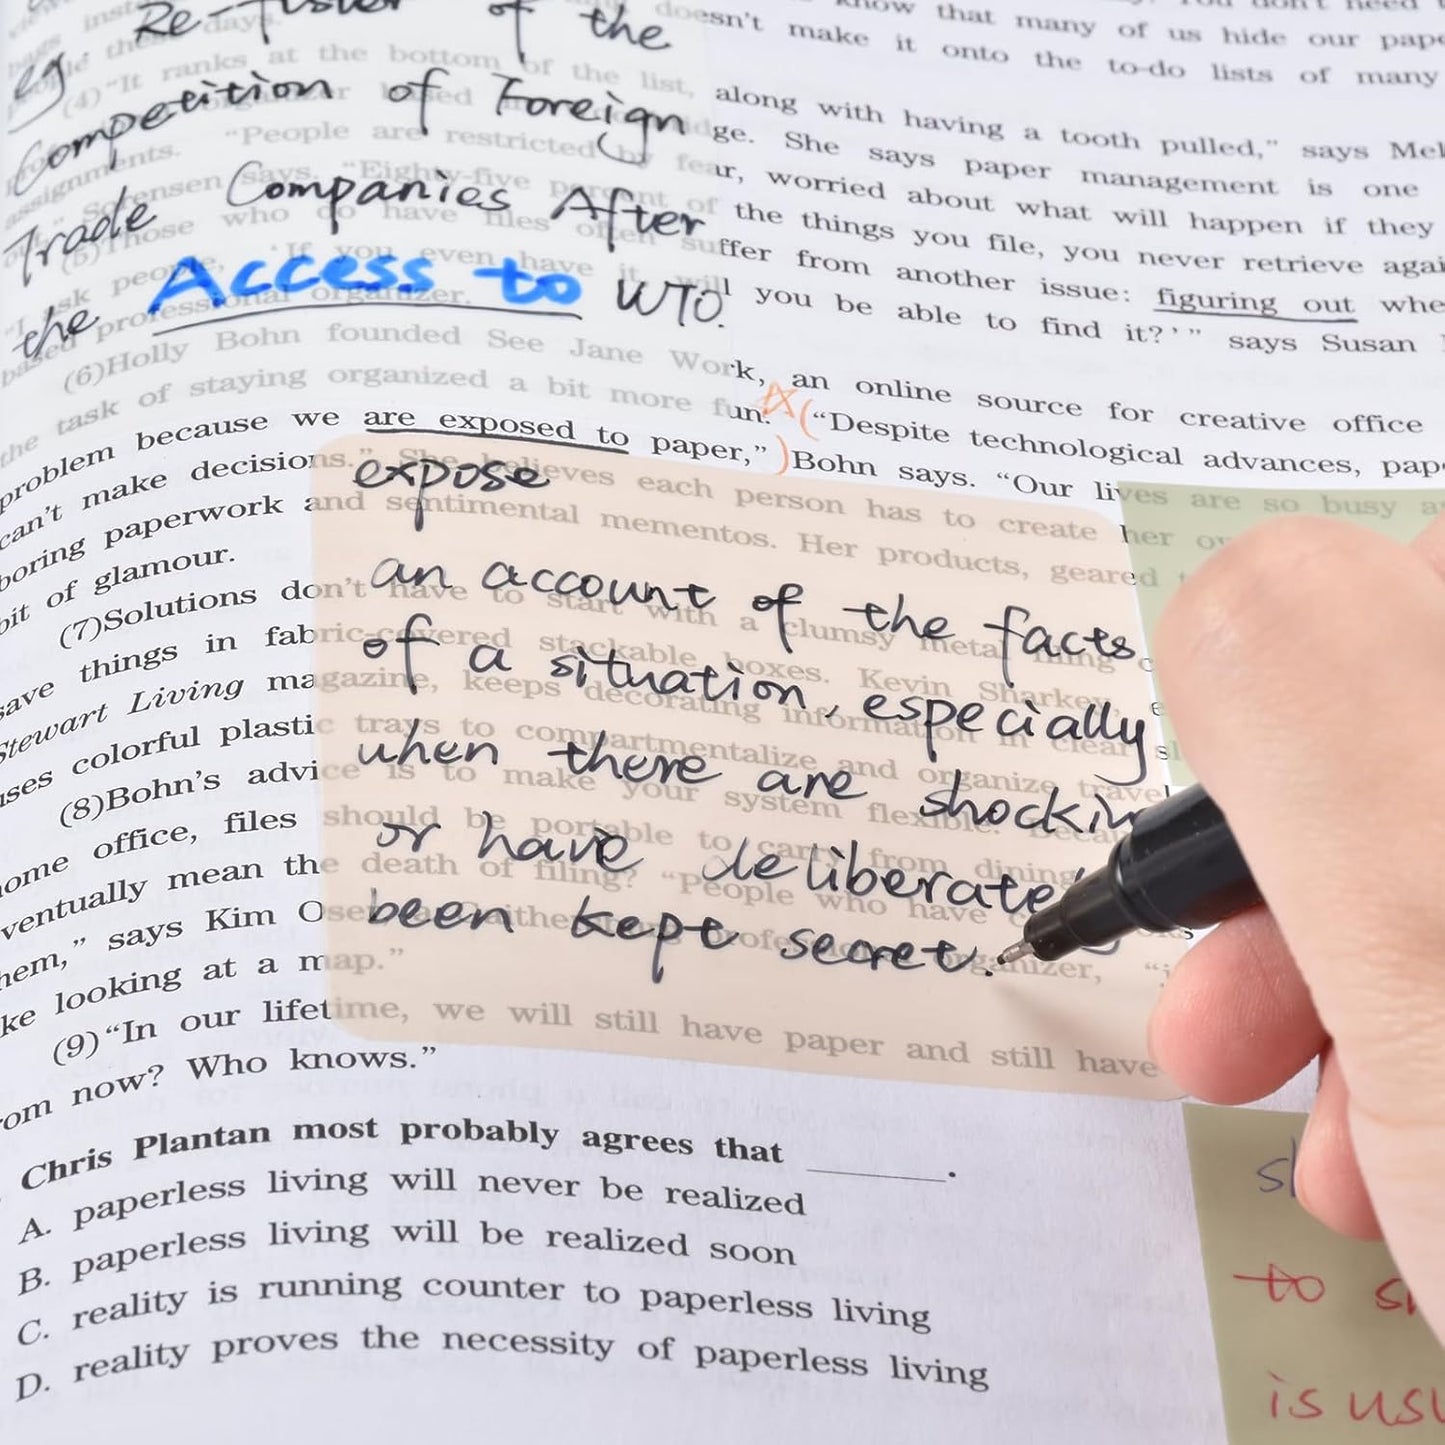 eg Re- of the
Competition of Foreign
Trade Companies After
the Access to WTO.
know that many of us hide our
doesn't make it onto the to-do lists of many
(4) "It ranks at the bottom of the list, along with having a tooth pulled," says
She says paper management is one
"People are restricted by fear, worried about what will happen if they
assignments.
Sorensen says. "Eighty-five percent of the things you file, you never retrieve
(5)Those who do have files often suffer from another issue: figuring out
"I ask people, 'If you even have it, will you be able to find it?'" says Susan
based professional organizer.
(6)Holly Bohn founded See Jane Work, an online source for creative office
the task of staying organized a bit more fun. ("Despite technological advances,
problem because we are exposed to paper,") Bohn says. "Our lives are so busy
can't make decisions." She believes each person has to create her
boring paperwork and sentimental mementos. Her products, geared
bit of glamour.
(7)Solutions don't have to start with a clumsy metal filing
save things in fabric-covered stackable boxes. Kevin Sharkey,
Stewart Living magazine, keeps decorating information in clear
uses colorful plastic trays to compartmentalize and organize travel
(8)Bohn's advice is to make your system flexible.
home office, files should be portable to carry from dining
eventually mean the death of filing? "People who have
them," says Kim professional organizer,
like looking at a map."
(9)"In our lifetime, we will still have paper and still have
from now? Who knows."
expose
an account of the facts
of a situation, especially
when there are
or have
been kept secret.
Chris Plantan most probably agrees that ______.
A. paperless living will never be realized
B. paperless living will be realized soon
C. reality is running counter to paperless living
D. reality proves the necessity of paperless living
to
is